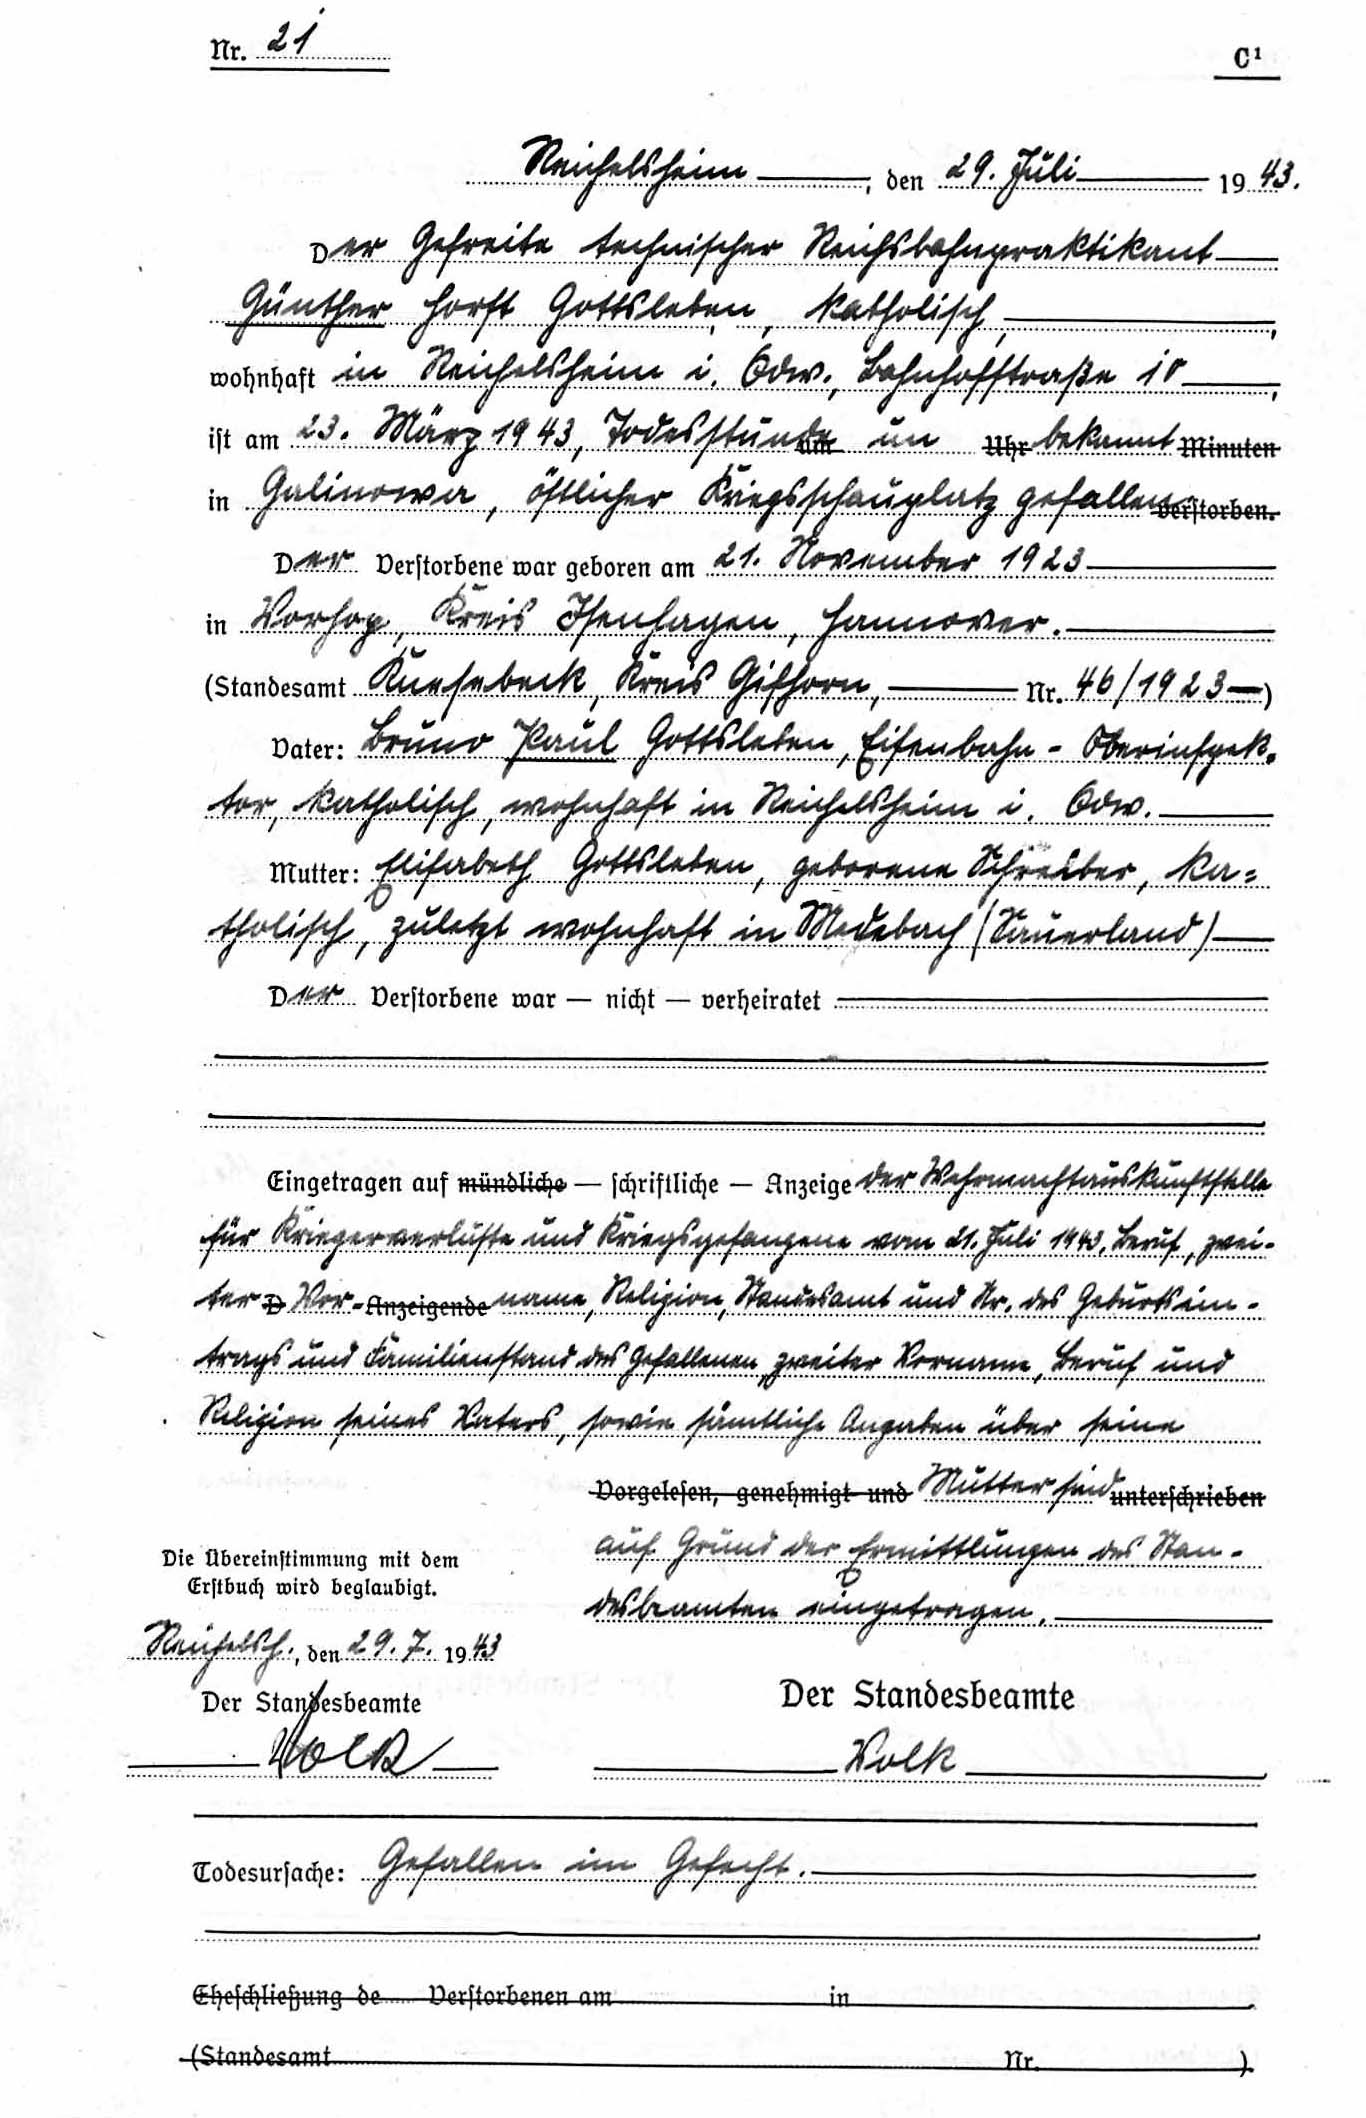 Nr. 21
C¹
Reichelsheim, den 29. Juli 1943.
Der Gefreite technischer Reichsbahnpraktikant
Günther Horst Gottsleben, katholisch,
wohnhaft in Reichelsheim i. Odw., Bahnhofstraße 10,
ist am 23. März 1943, Todesstunde um un Uhr bekannt Minuten
in Galinowa, östlicher Kriegsschauplatz gefallen verstorben.
Der Verstorbene war geboren am 21. November 1923
in Vorhop, Kreis Isenhagen, Hannover.
(Standesamt Knesebeck, Kreis Gifhorn, Nr. 46/1923)
Vater: Bruno Paul Gottsleben, Eisenbahn-Oberinspek-
tor, katholisch, wohnhaft in Reichelsheim i. Odw.
Mutter: Elisabeth Gottsleben, geborene Schreiber, ka-
tholisch, zuletzt wohnhaft in Medebach (Sauerland)
Der Verstorbene war — nicht — verheiratet
Eingetragen auf mündliche — schriftliche — Anzeige der Wehrmachtauskunftstelle
für Kriegerverluste und Kriegsgefangene vom 21. Juli 1943. Beruf, zwei-
ter D Vor- Anzeigende name, Religion, Standesamt und Nr. des Geburtsein-
trags und Familienstand des Gefallenen, zweiter Vorname, Beruf und
Religion seines Vaters, sowie sämtliche Angaben über seine
Vorgelesen, genehmigt und Mutter sind unterschrieben
auf Grund der Ermittlungen des Stan-
desbeamten eingetragen.
Die Übereinstimmung mit dem
Erstbuch wird beglaubigt.
Reichelsh., den 29.7. 1943
Der Standesbeamte
Volk
Der Standesbeamte
Volk
Todesursache: Gefallen im Gefecht.
Eheschließung de Verstorbenen am in
(Standesamt Nr. )